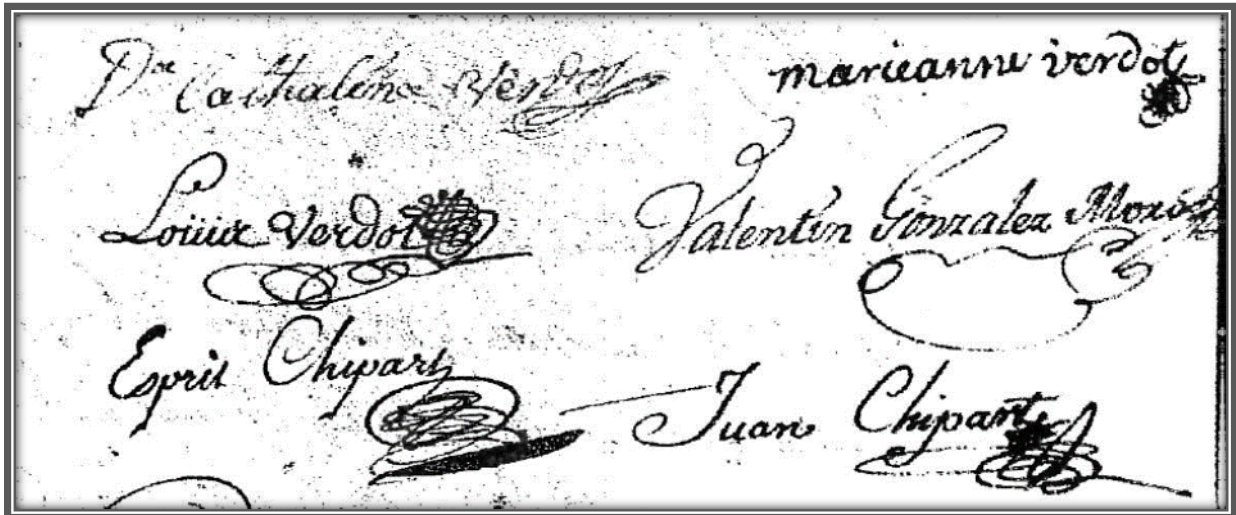 Dña Cathalina Verdot marieanne verdot
Loüix Verdot Valentin Gonzalez
Esprit Chipart Juan Chipart